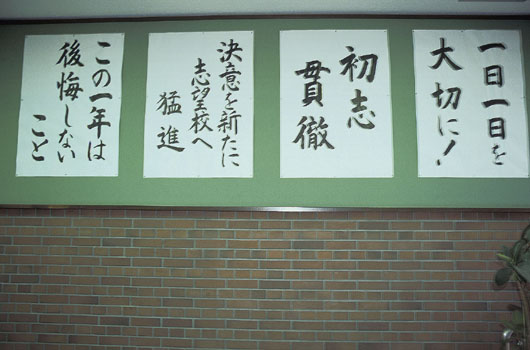 一日一日を
大切に!
初志
貫徹
決意を新たに
志望校へ
猛進
この一年は
後悔しない
こと